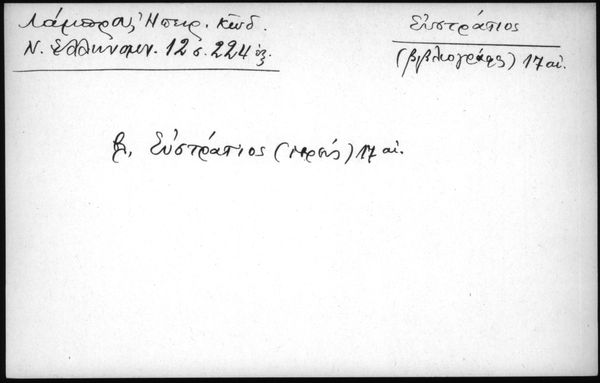 Λάμπρου, Ἠπειρ. Κώδ.
Ν. Ἑλληνομν. 12 σ. 224 ἑξ.
Εὐστράτιος
(βιβλιογράφος) 17 αἰ.
βλ. Εὐστράτιος (ἱερεύς) 17 αἰ.